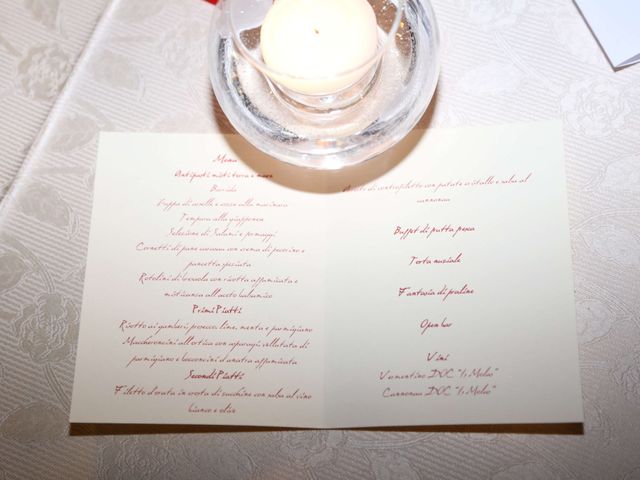 Menu
Antipasti misti terra e mare
Burrida
Zuppa di cozze alla marinara
Tempura alla giapponese
Selezione di Salumi e formaggi
Cornetti di pane carasau con crema di pecorino e
pancetta speziata
Rotolini di verza con ricotta affumicata e
all'aceto balsamico
Primi Piatti
Risotto ai gamberi, prosecco, lime, menta e parmigiano
Maccheroncini all'ortica con asparagi vellutata di
parmigiano e bocconcini d'anatra affumicata
Secondi Piatti
Filetto d'orata in crosta di zucchine con salsa al vino
bianco e olive
di controfiletto con patate a stelle e salsa al
cannonau
Buffet di frutta fresca
Torta nuziale
Fantasia di praline
Open bar
Vini
Vermentino DOC "Is Melas"
Cannonau DOC "Is Melas"